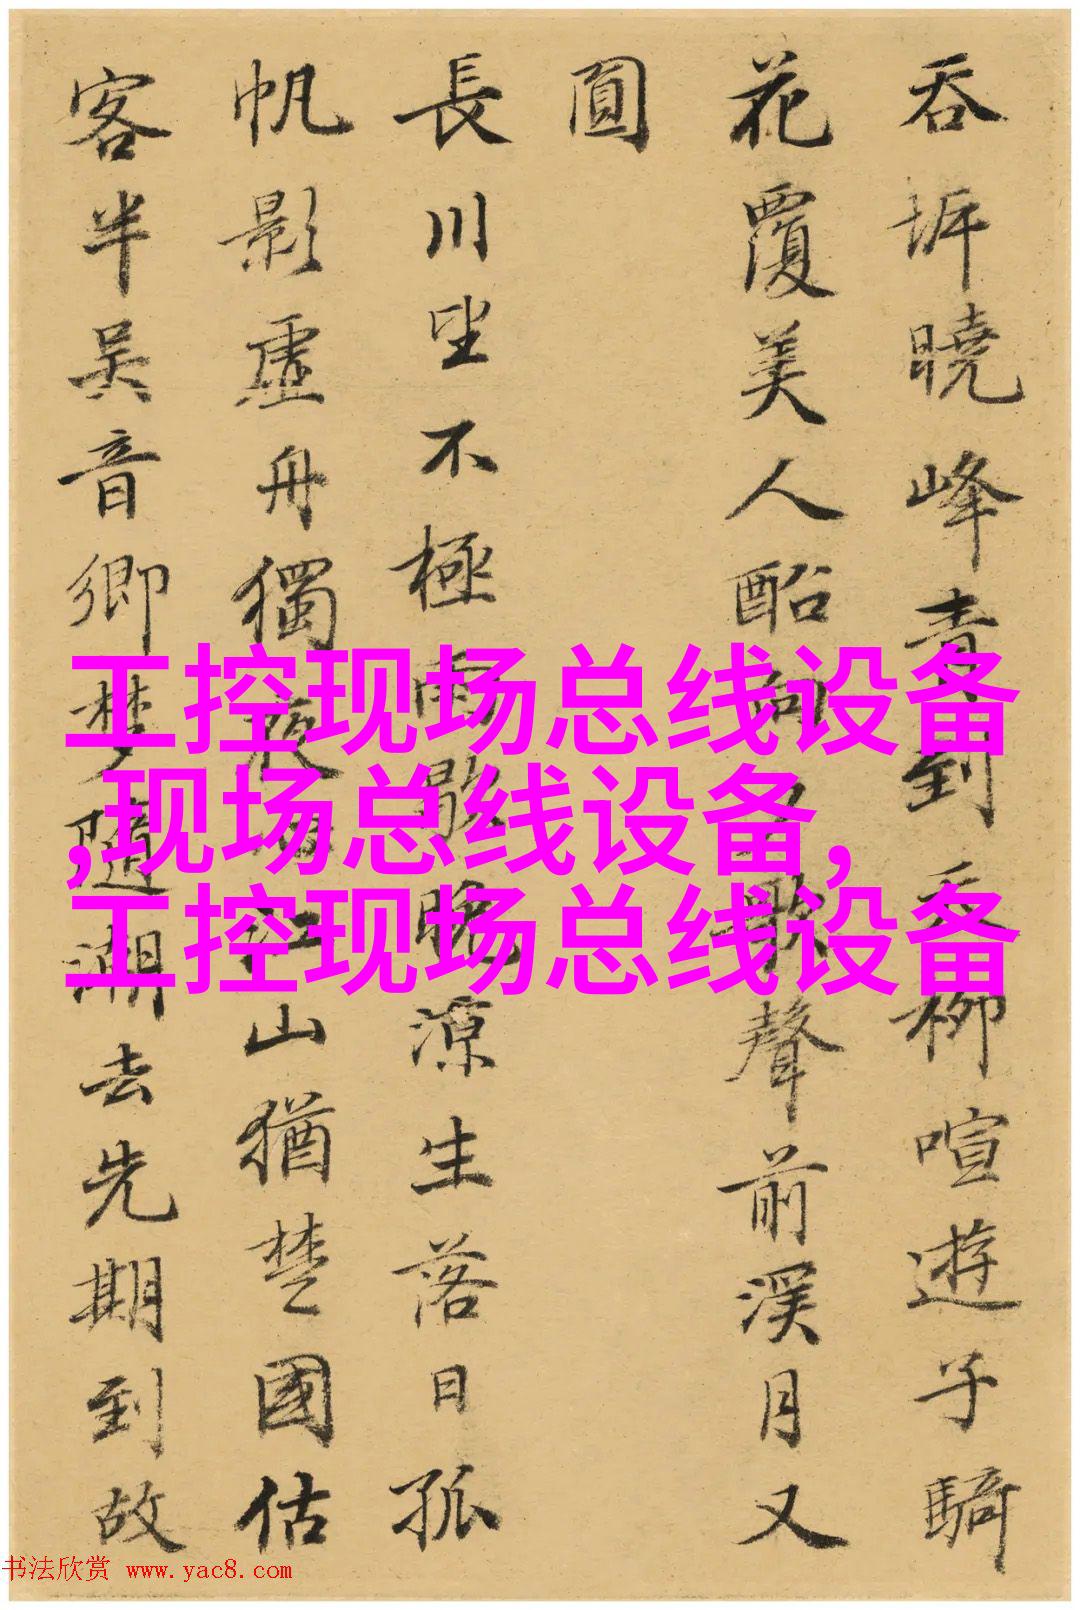 吞 坼 曉 峰 青 到 天 柳 喧 遊 子 騎
花 覆 美 人 酩 向 人 歌 聲 前 溪 月 又
圓
長 川 坐 不 極 雨 歇 晚 凉 生 落 日 孤
帆 影 虛 舟 獨 夜 江 山 猶 楚 國 估
客 半 吳 音 鄉 梦 隨 潮 去 先 期 到 故
工控现场总线设备
,现场总线设备,
工控现场总线设备
书法欣赏 www.yac8.com